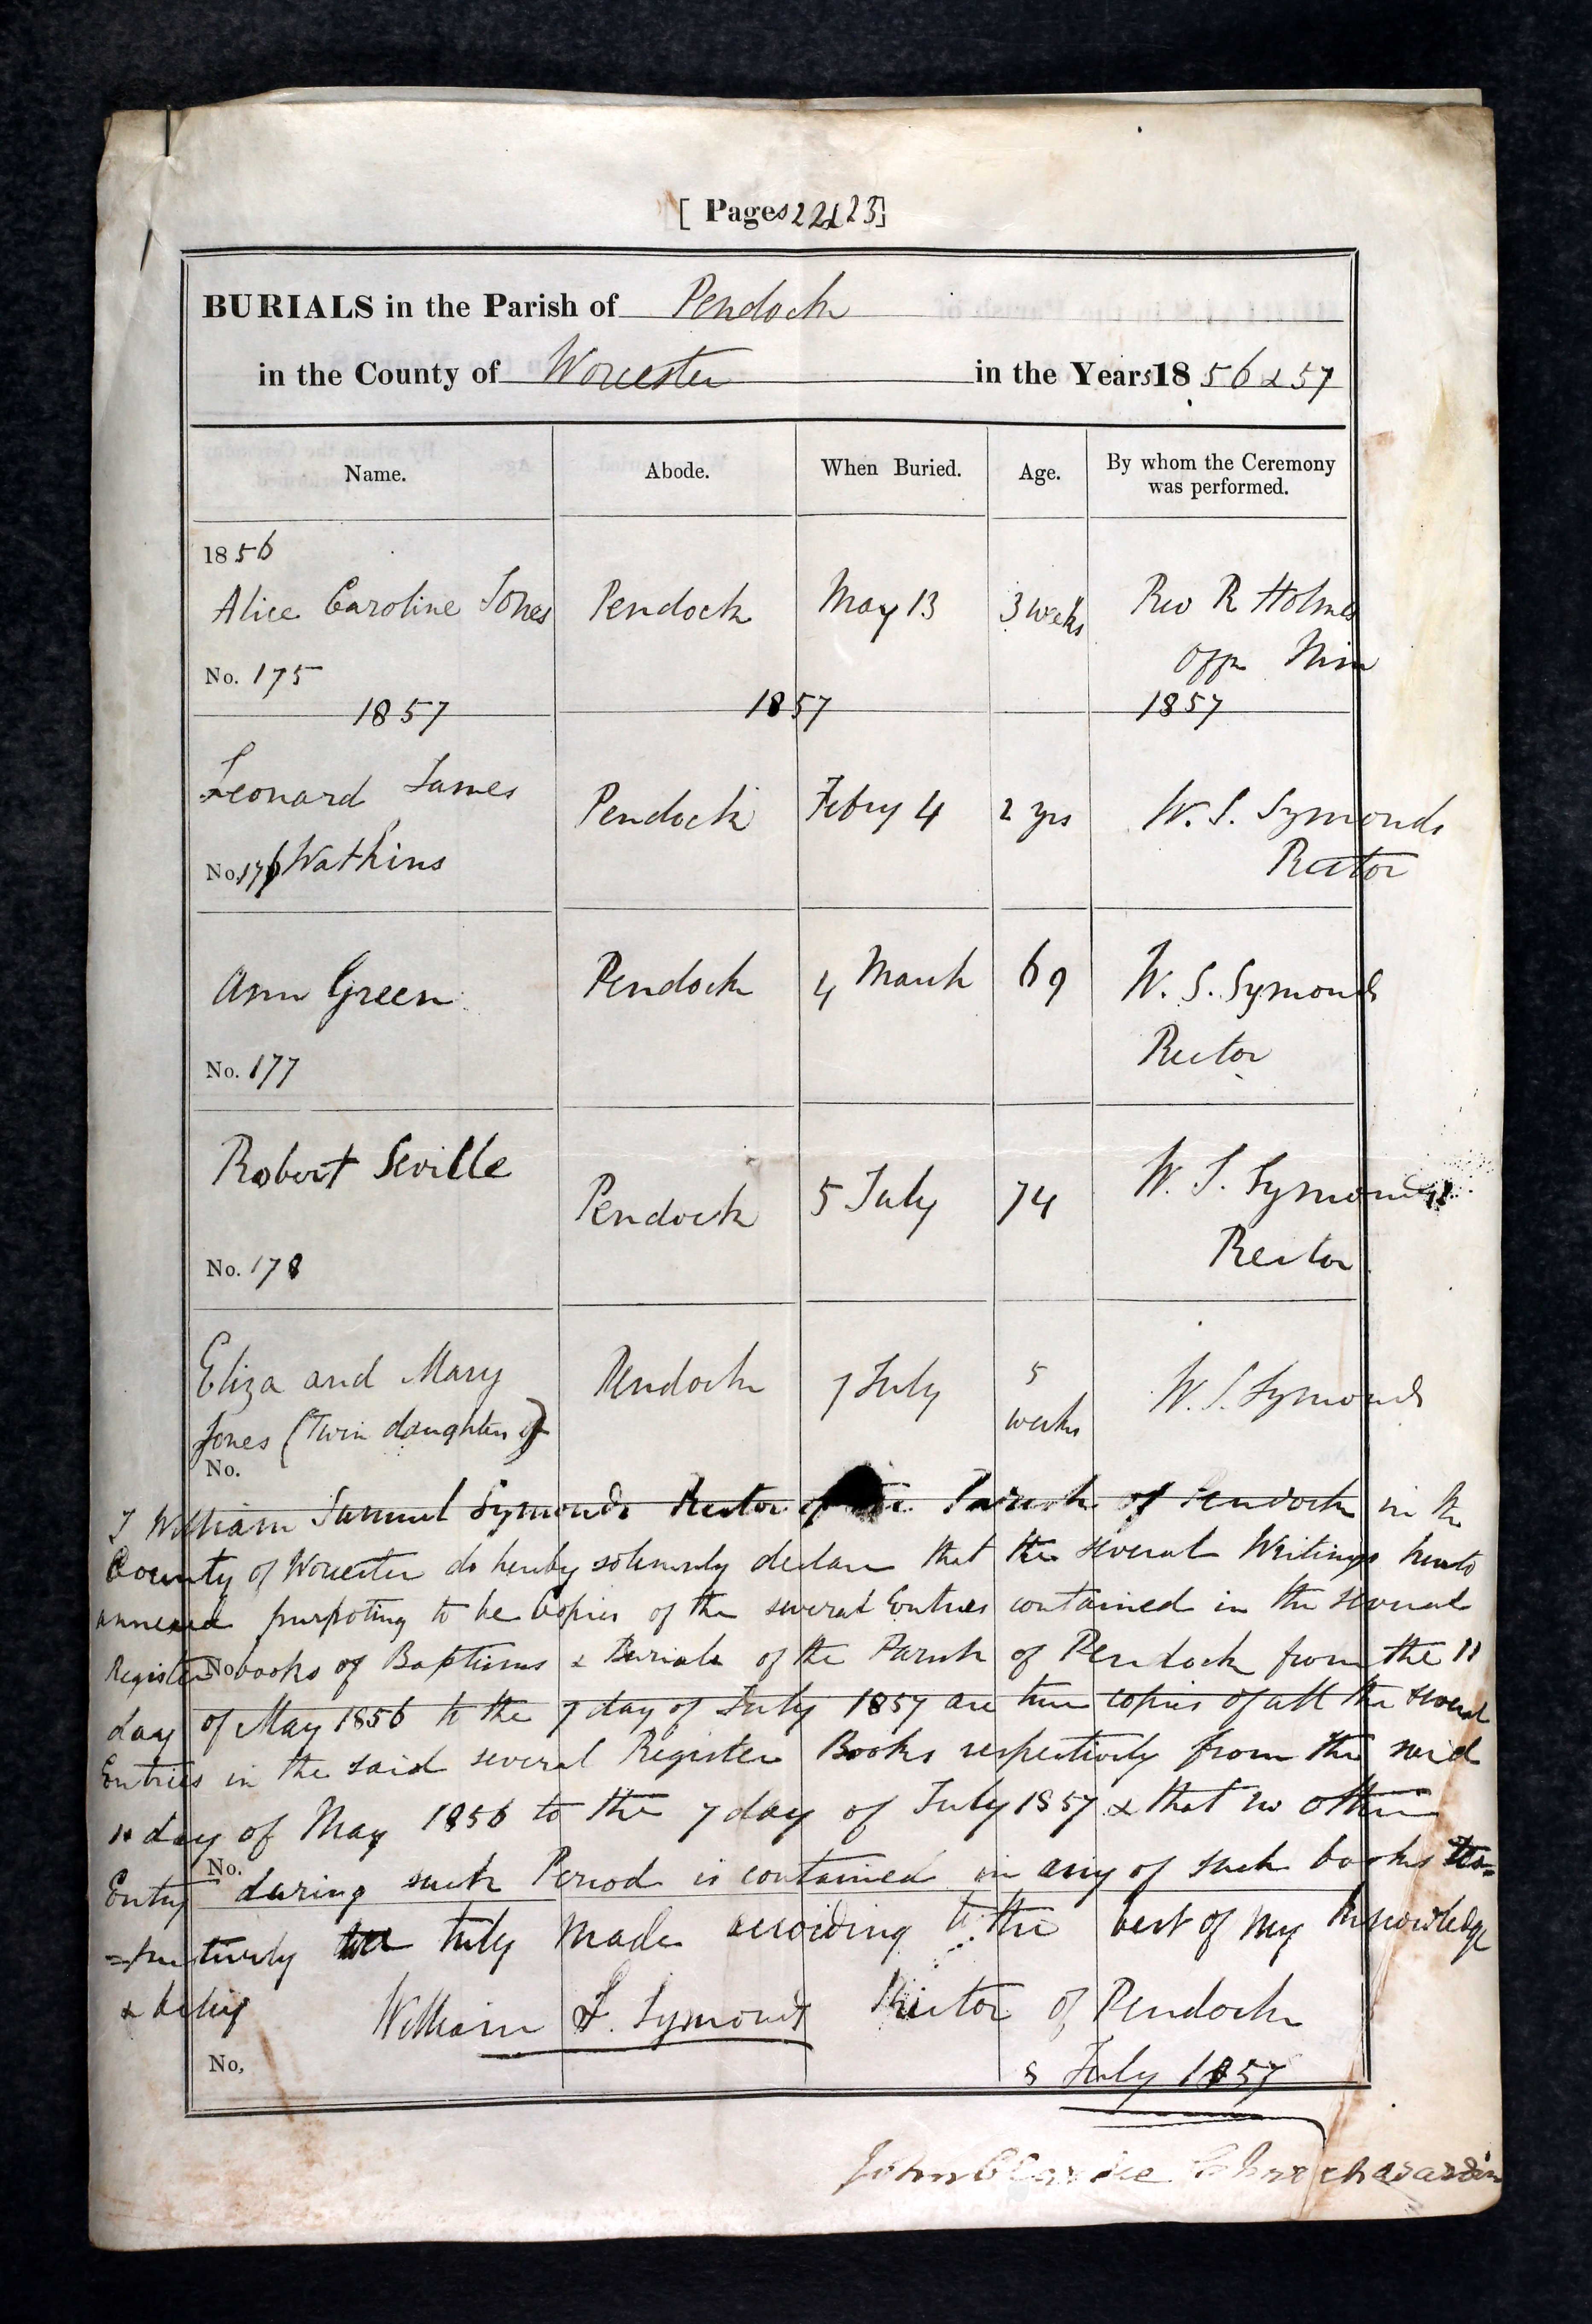 [ Pages 22 & 23]
BURIALS in the Parish of Pendock
in the County of Worcester in the Years 18 56 & 57
Name. Abode. When Buried. Age. By whom the Ceremony was performed.
1856
Alice Caroline Jones Pendock May 13 3 weeks Rev R Holmes
Offg Min
No. 175
1857 1857 1857
Leonard James Pendock Febry 4 2 yrs W. S. Symonds
No. 176 Watkins Rector
Ann Green Pendock 4 March 69 W. S. Symonds
Rector
No. 177
Robert Seville Pendock 5 July 74 W. S. Symonds
Rector
No. 178
Eliza and Mary Pendock 7 July 5 weeks W. S. Symonds
Jones (Twin daughters)
No.
I William Samuel Symonds Rector of the Parish of Pendock in the
County of Worcester do hereby solemnly declare that the several Writings hereto
annexed purpoting to be Copies of the several Entries contained in the several
Register books of Baptisms & Burials of the Parish of Pendock from the 11
No.
day of May 1856 to the 7 day of July 1857 are true copies of all the several
Entries in the said several Register Books respectively from the said
11 day of May 1856 to the 7 day of July 1857 & that no other
No.
Entry during such Period is contained in any of such books res=
=pectively truly made according to the best of my knowledge
& belief William S. Symonds Rector of Pendock
No. 8 July 1857
John Clarke Churchwardin